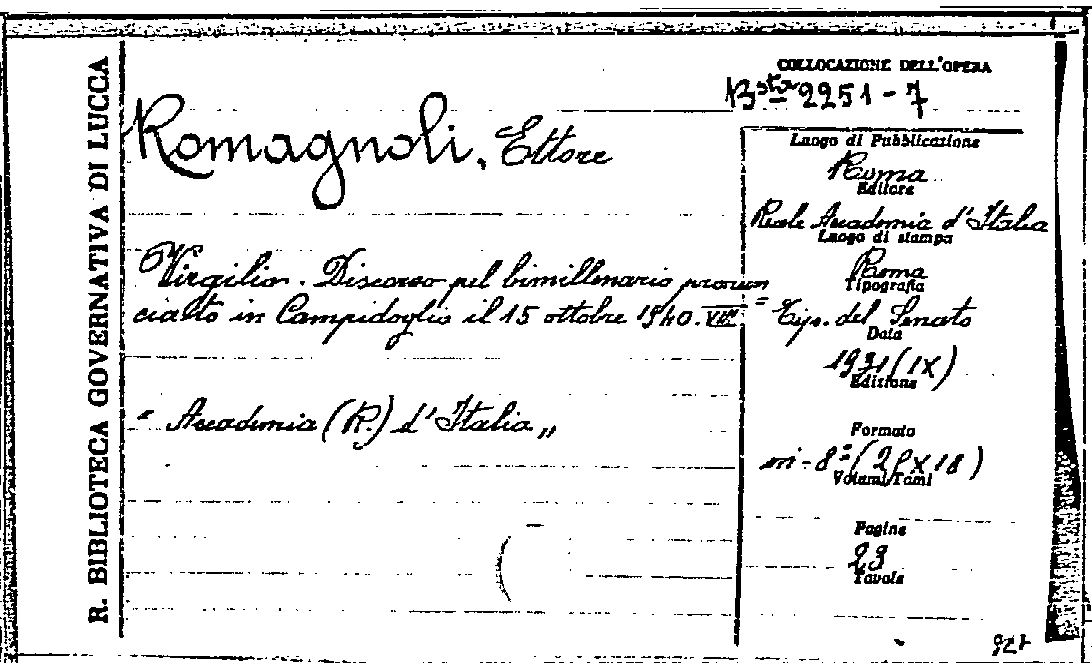 R. BIBLIOTECA GOVERNATIVA DI LUCCA
COLLOCAZIONE DELL'OPERA
Bsta 2251-7
Romagnoli, Ettore
Virgilio. Discorso pel bimillenario pronun=
ciato in Campidoglio il 15 ottobre 1940. VIII
" Accademia (R.) d'Italia "
Luogo di Pubblicazione
Roma
Editore
Reale Accademia d'Italia
Luogo di stampa
Roma
Tipografia
Tip. del Senato
Data
1931 (IX)
Edizione
Formato
in-8° (28x18)
Volumi/Tomi
Pagine
23
Tavole